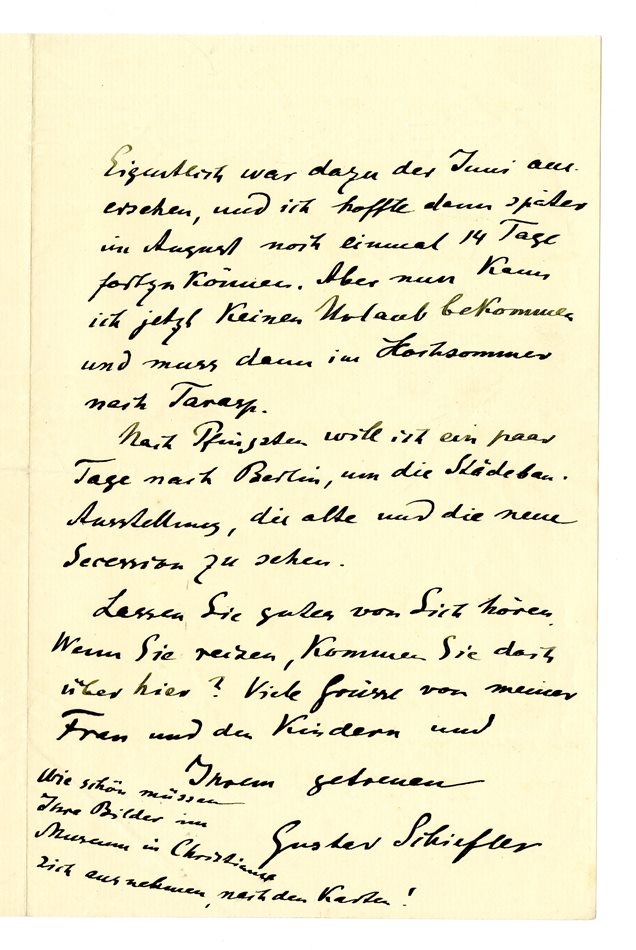 Eigentlich war dazu der Juni aus-
ersehen, und ich hoffte dann später
im August noch einmal 14 Tage
fortzukönnen. Aber nun kann
ich jetzt keinen Urlaub bekommen
und muss dann im Hochsommer
nach Tarasp.
Nach Pfingsten will ich ein paar
Tage nach Berlin, um die Städtebau-
Ausstellung, die alte und die neue
Secession zu sehen.
Lassen Sie gutes von Sich hören.
Wenn Sie reisen, kommen Sie doch
über hier? Viele Grüsse von meiner
Frau und den Kindern und
Ihrem getreuen
Gustav Schiefler
Wie schön müssen
Ihre Bilder im
Museum in Christiania
sich ausnehmen, nach den Karten!